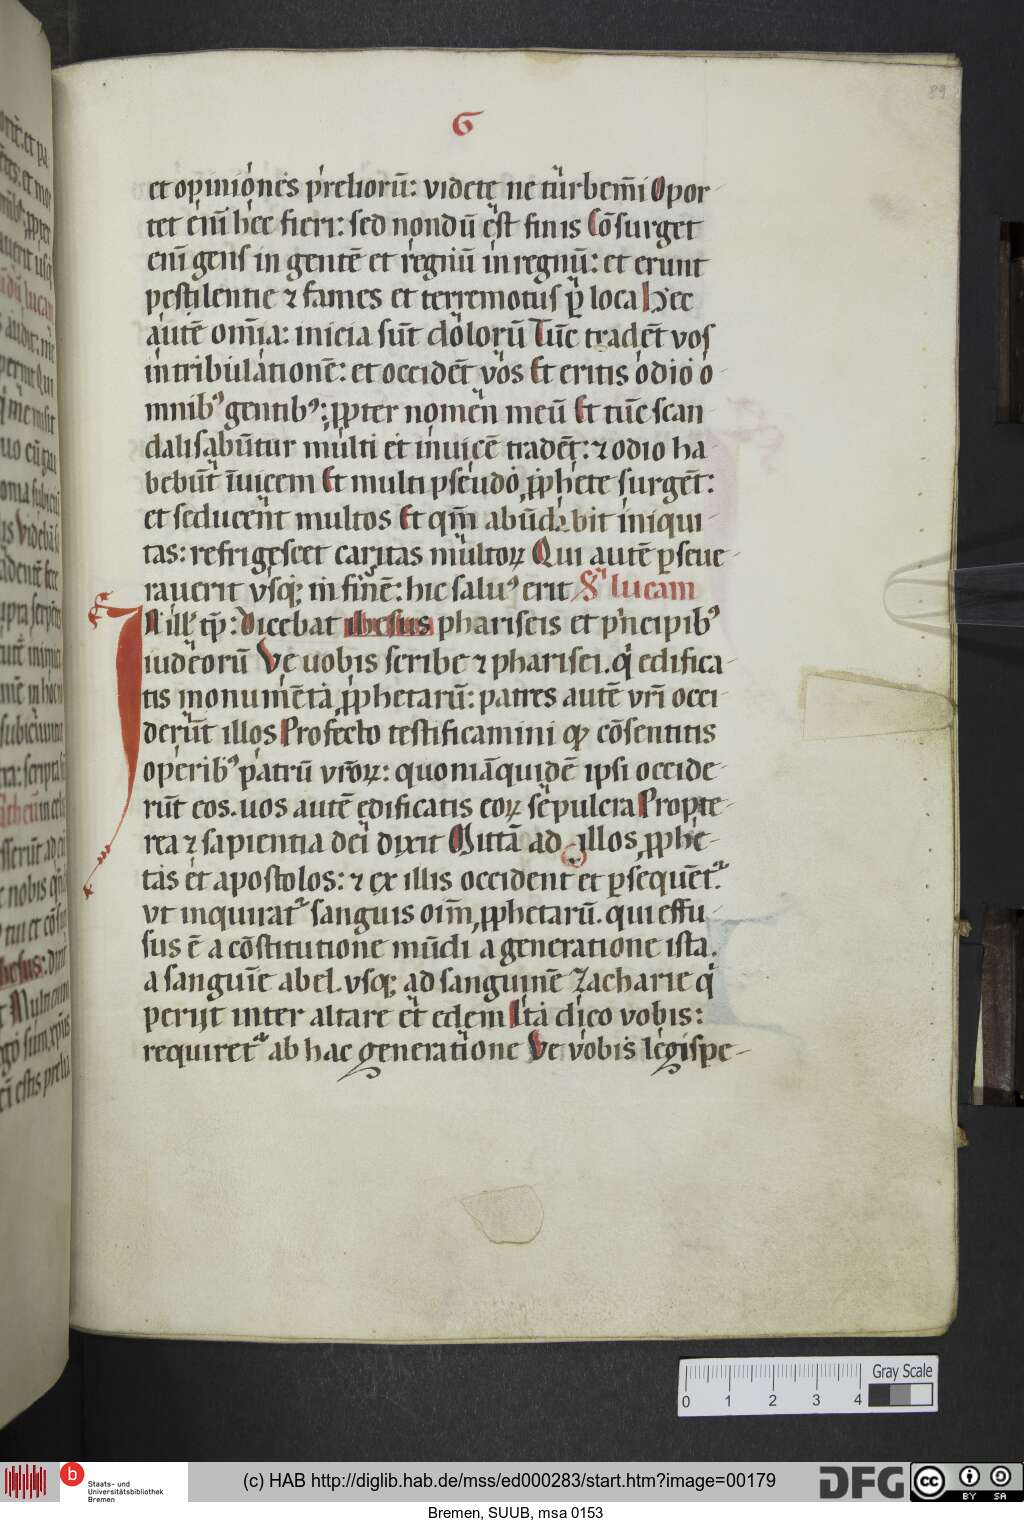 89
G
et opiniones preliorū: videte ne turbem̄i Opor-
tet enī hec fieri: sed nondū est finis Cōsurget
enī gens in gentē et regnū in regnū: et erunt
pestilentie ⁊ fames et terremotus ꝑ loca Hec
autē om̄ia: inicia sūt dolorū Tūc tradēt vos
in tribulationē: et occidēt vos Et eritis odio o-
mnibꝰ gentibꝰ: ꝓpter nomen meū Et tūc scan-
dalisabūtur multi et inuicē tradēt: ⁊ odio ha-
bebūt īuicem Et multi pseudo ꝓphete surgēt:
et seducent multos Et qm̄ abūdabit iniqui-
tas: refrigescet caritas multoꝝ Qui autē ꝑseue-
rauerit vsqꝫ in finē: hic saluꝰ erit Sm lucam
IN ill' tp̄: Dicebat ihesus phariseis et pncipibꝰ
iudeorū Ve uobis scribe ⁊ pharisei. q edifica-
tis monumēta ꝓphetarū: patres autē vrī occi-
derūt illos Profecto testificamini ꝙ cōsentitis
operibꝰ patrū vroꝝ: quoniā quidē ipsi occide-
rūt eos. uos autē edificatis eoꝝ sepulcra Propte-
rea ⁊ sapientia dei dixit Mittā ad illos ꝓphe-
tas et apostolos: ⁊ ex illis occident et ꝑsequēt.
vt inquirat sanguis oīm ꝓphetarū. qui effu-
sus ē a cōstitutione mūdi a generatione ista.
a sanguīe abel. vsqꝫ ad sanguinē Zacharie q
perijt inter altare et edem Ita dico vobis:
requiret ab hac generatione Ve vobis legispe-
Gray Scale
0 1 2 3 4
b
Staats- und
Universitätsbibliothek
Bremen
(c) HAB http://diglib.hab.de/mss/ed000283/start.htm?image=00179
DFG
cc BY SA
Bremen, SUUB, msa 0153